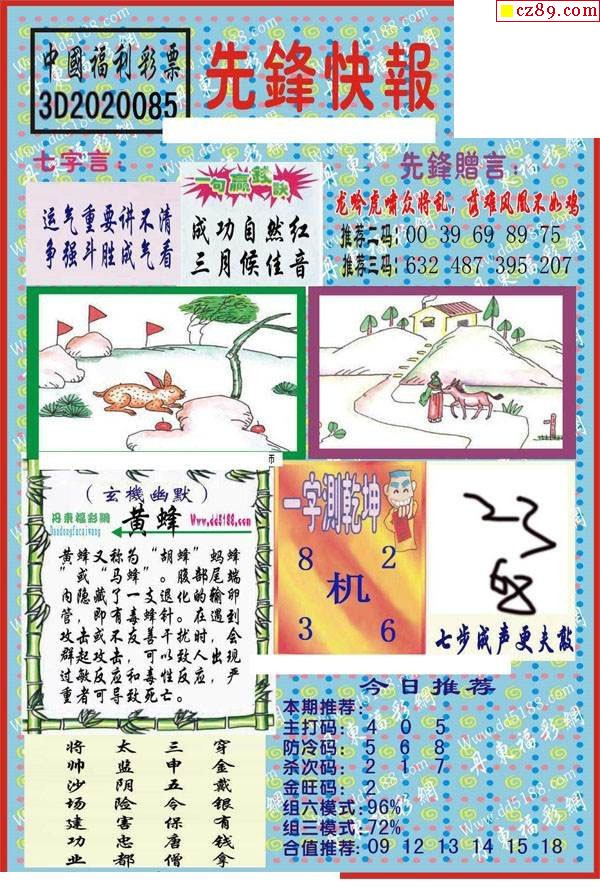 cz89.com
中國福利彩票
3D2020085
先鋒快報
七字言：
运气重要讲不清
争强斗胜成气看
一句赢錢诀
成功自然红
三月候佳音
先鋒贈言：
龙吟虎啸众将乱，落难凤凰不如鸡
推荐二码：00 39 69 89 75
推荐三码：632 487 395 207
（玄機幽默）
丹東福彩網
Dandongfucaiwang
黄蜂
Www.dd5188.com
黄蜂又称为“胡蜂”蚂蜂
”或“马蜂”。腹部尾端
内隐藏了一支退化的输卵
管，即有毒蜂针。在遇到
攻击或不友善干扰时，会
群起攻击，可以致人出现
过敏反应和毒性反应，严
重者可导致死亡。
一字測乾坤
8 2
机
3 6
七步成声更夫敲
将帅沙场建功业
太监阴险害忠都
三申五令保唐僧
穿金戴银有钱拿
今日推荐
本期推荐：
主打码：4 0 5
防冷码：5 6 8
杀次码：2 1 7
金旺码：2
组六模式：96%
组三模式：72%
合值推荐：09 12 13 14 15 18
Www.dd5188.com
丹東福彩網